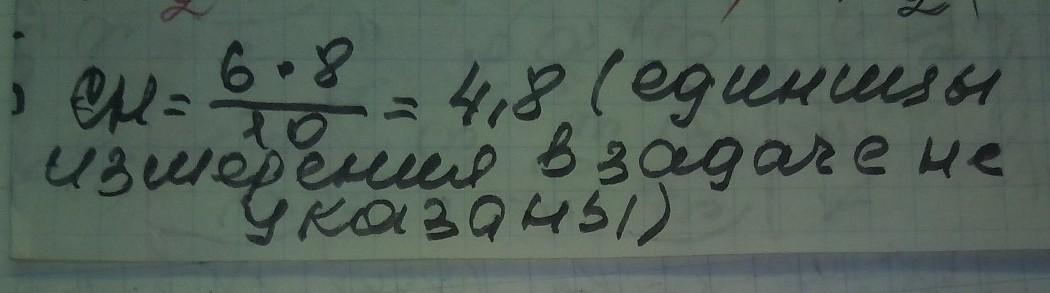 CH = 6·8/10 = 4,8 (единицы
измерения в задаче не
указаны)